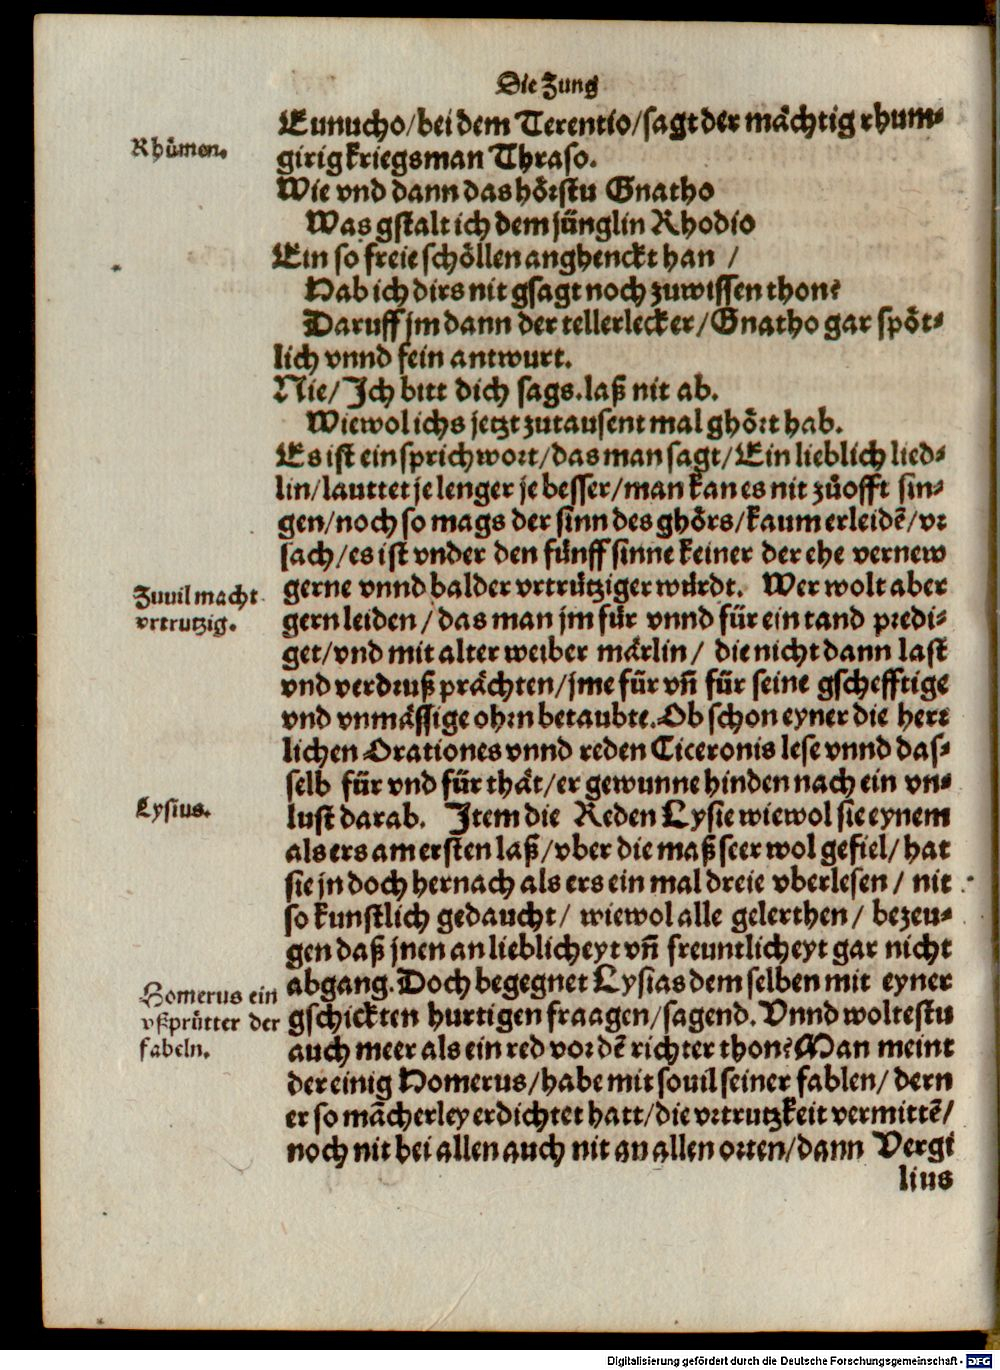 Die Zung
Eunucho/bei dem Terentio/sagt der mächtig rhum⸗
Rhuͤmen.
girig kriegsman Thraso.
Wie vnd dann das hoͤrstu Gnatho
Was gstalt ich dem juͤnglin Rhodio
Ein so freie schoͤllen anghenckt han /
Hab ich dirs nit gsagt noch zuwissen thon?
Daruff jm dann der tellerlecker/Gnatho gar spoͤt⸗
lich vnnd fein antwurt.
Nie/Ich bitt dich sags.laß nit ab.
Wiewol ichs jetzt zutausent mal ghoͤrt hab.
Es ist ein sprichwort/das man sagt/Ein lieblich lied⸗
lin/lauttet je lenger je besser/man kan es nit zuͦofft sin⸗
gen/noch so mags der sinn des ghoͤrs/kaum erleidē/vr
sach/es ist vnder den fuͤnff sinne keiner der ehe vernew
gerne vnnd balder vrtruͤtziger wuͤrdt. Wer wolt aber
Zuuil macht
vrtrutzig.
gern leiden/das man jm fuͤr vnnd fuͤr ein tand predi⸗
get/vnd mit alter weiber maͤrlin/ die nicht dann last
vnd verdruß praͤchten/jme fuͤr vñ fuͤr seine gschefftige
vnd vnmaͤssige ohrn betaubte.Ob schon eyner die herr
lichen Orationes vnnd reden Ciceronis lese vnnd das⸗
selb fuͤr vnd fuͤr thaͤt/er gewunne hinden nach ein vn⸗
lust darab. Item die Reden Lysie wiewol sie eynem
Lysius.
als ers am ersten laß/vber die maß seer wol gefiel/hat
sie jn doch hernach als ers ein mal dreie vberlesen/ nit
so kunstlich gedaucht/ wiewol alle gelerthen/ bezeu⸗
gen daß jnen an lieblicheyt vñ freuntlicheyt gar nicht
abgang.Doch begegnet Lysias dem selben mit eyner
Homerus ein
vßpruͤtter der
fabeln.
gschickten hurtigen fraagen/sagend. Vnnd woltestu
auch meer als ein red vor dē richter thon?Man meint
der einig Homerus/habe mit souil seiner fablen/dern
er so mācherley erdichtet hatt/die vrtrutzkeit vermittē/
noch nit bei allen auch nit an allen orten/dann Vergi
lius
Digitalisierung gefördert durch die Deutsche Forschungsgemeinschaft - DFG